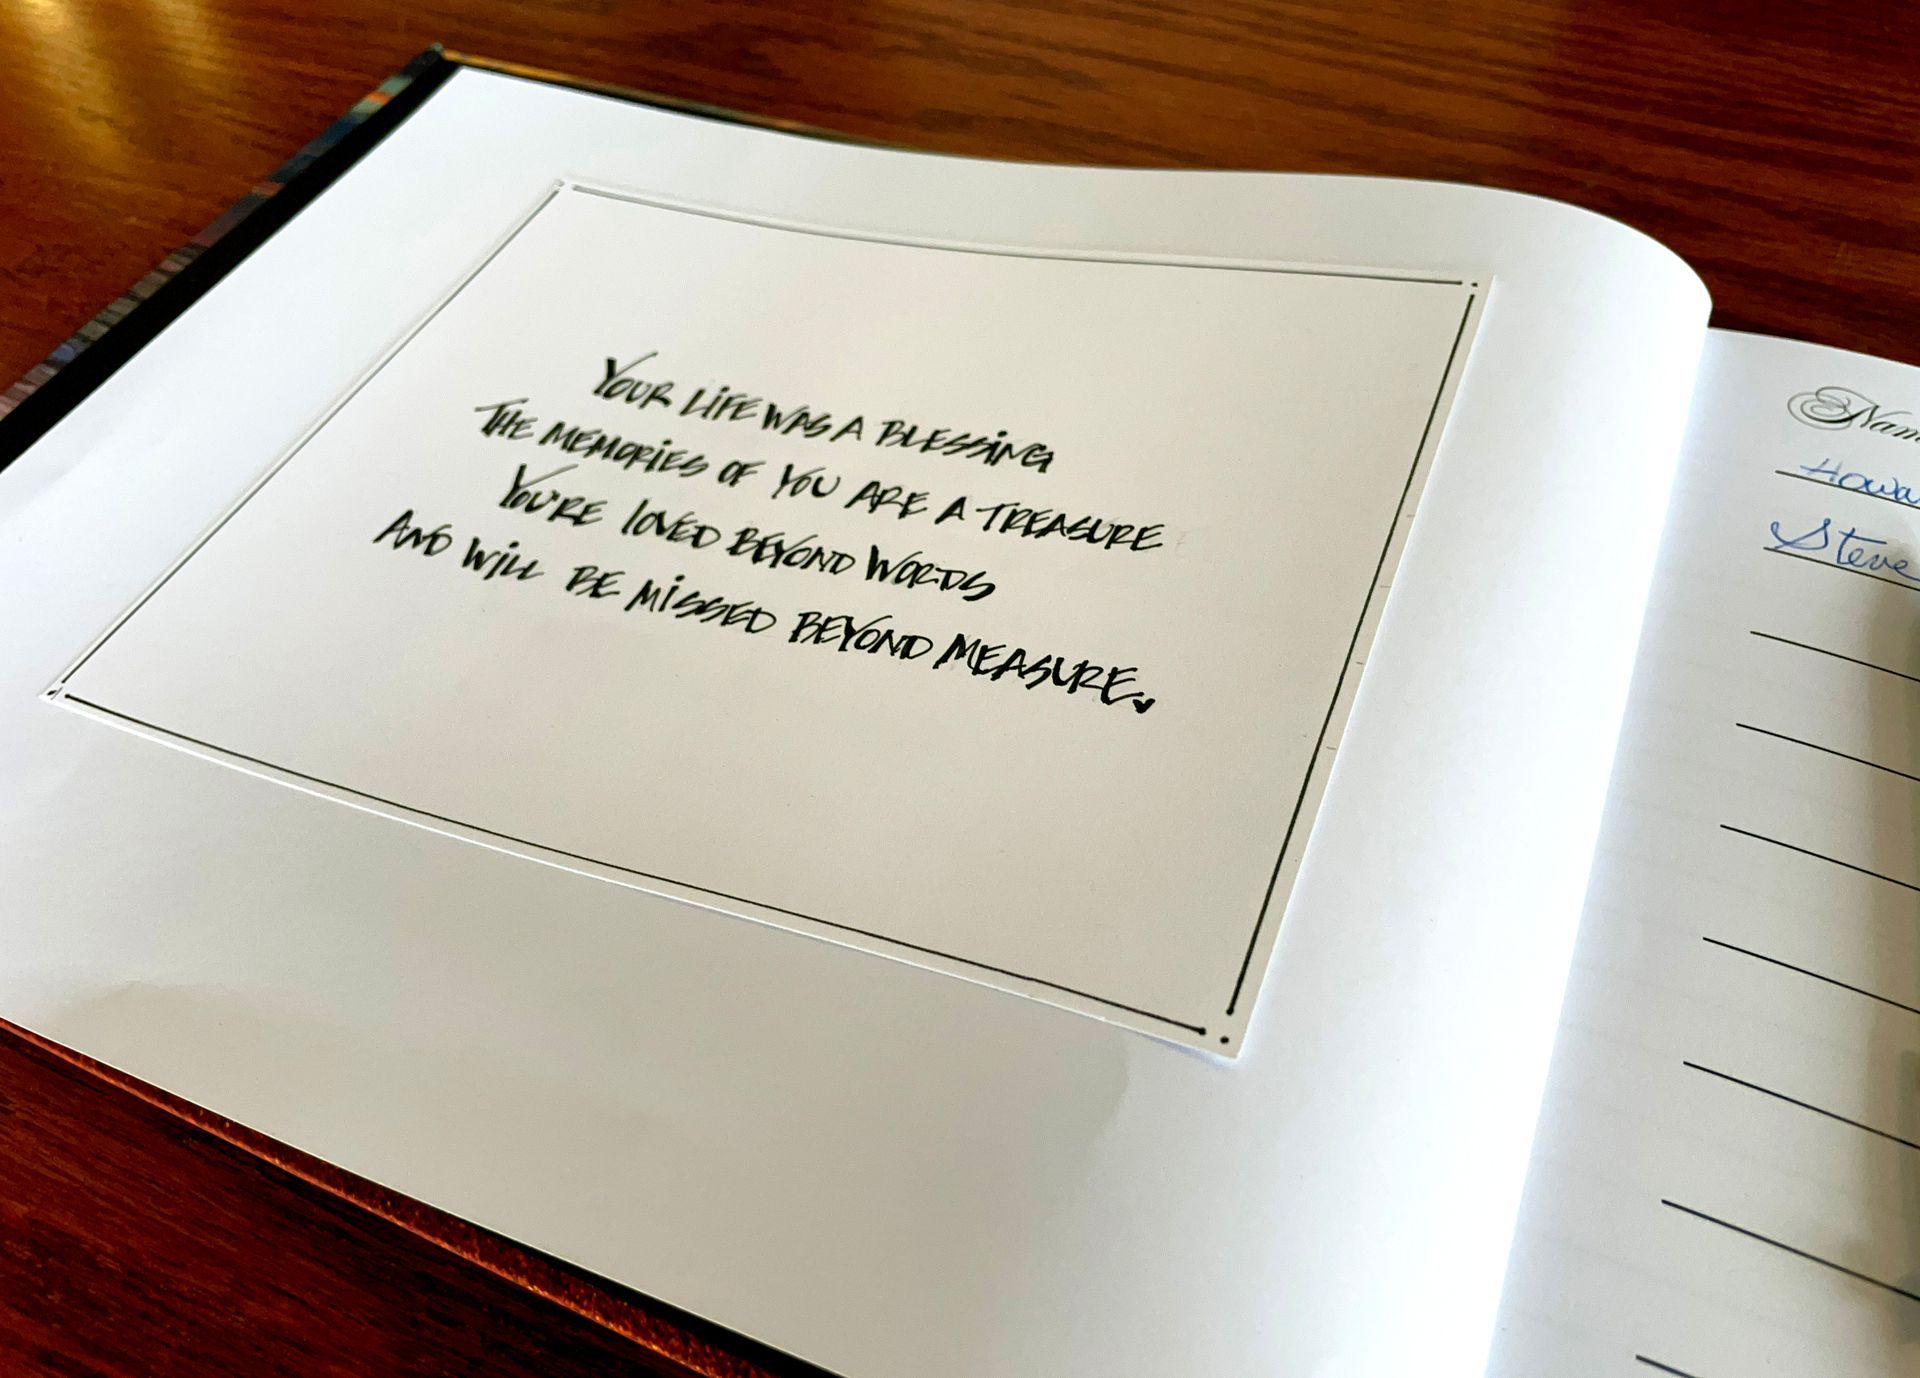 YOUR LIFE WAS A BLESSING
THE MEMORIES OF YOU ARE A TREASURE
YOU'RE LOVED BEYOND WORDS
AND WILL BE MISSED BEYOND MEASURE.
Steve